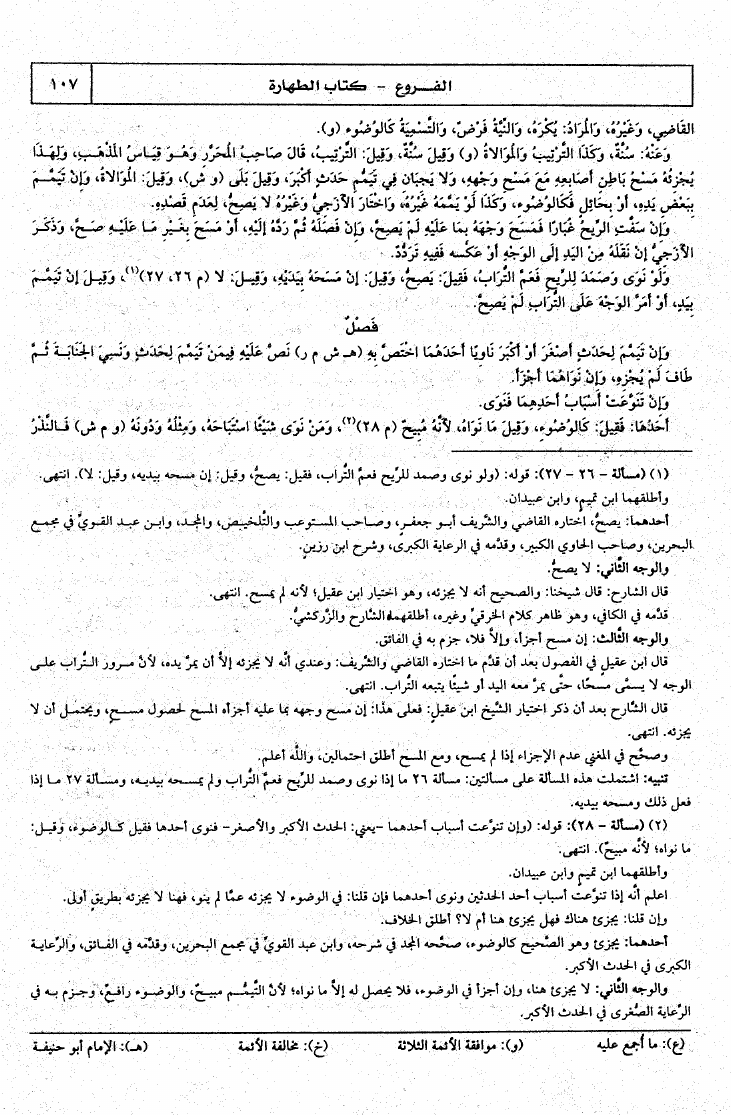 الفـــروع - كتاب الطهارة
١٠٧
القَاضِي، وَغَيْرُهُ، وَالمُرَادُ: يُكْرَهُ، وَالنِّيَّةُ فَرْضٌ، وَالتَّسْمِيَةُ كَالوُضُوء (و).
وَعَنْهُ: سُنَّةٌ، وَكَذَا التَّرْتِيبُ وَالْمُوَالاةُ (و) وَقِيلَ سُنَّةٌ، وَقِيلَ: التَّرْتِيبُ، قَالَ صَاحِبُ المُحَرَّرِ وَهُوَ قِيَاسُ المَذْهَبِ، وَلِهَذَا
يُجْزِئُهُ مَسْحُ بَاطِنِ أَصَابِعِهِ مَعَ مَسْحِ وَجْهِهِ، وَلا يَجِبَانِ فِي تَيَمُّمِ حَدَثٍ أَكْبَرَ، وَقِيلَ بَلَى (و ش)، وَقِيلَ: الْمُوَالاةُ، وَإِنْ تَيَمَّمَ
بِبَعْضِ يَدِهِ، أَوْ بِحَائِلٍ فَكَالوُضُوء، وَكَذَا لَوْ يَمَّمَهُ غَيْرُهُ، وَاخْتَارَ الآزَجِيُّ وَغَيْرُهُ لا يَصِحُّ، لِعَدَمِ قَصْدِهِ.
وَإِنْ سَفَتِ الرِّيحُ غُبَارًا فَمَسَحَ وَجْهَهُ بِمَا عَلَيْهِ لَمْ يَصِحَّ، وَإِنْ فَصَلَهُ ثُمَّ رَدَّهُ إلَيْهِ، أَوْ مَسَحَ بِغَيْرِ مَا عَلَيْهِ صَحَّ، وَذَكَرَ
الآزَجِيُّ إنْ نَقَلَهُ مِنْ اليَدِ إلَى الوَجْهِ أَوْ عَكْسه فَفِيهِ تَرَدُّدٌ.
وَلَوْ نَوَى وَصَمَدَ لِلرِّيحِ فَعَمَّ التُّرَابُ، فَقِيلَ: يَصِحُّ، وَقِيلَ: إنْ مَسَحَهُ بِيَدَيْهِ، وَقِيلَ: لا (م ٢٦، ٢٧)(١)، وَقِيلَ إنْ تَيَمَّمَ
بِيَدٍ، أَوْ أَمَرَّ الوَجْهَ عَلَى التُّرَابِ لَمْ يَصِحَّ.
فَصْلٌ
وَإِنْ تَيَمَّمَ لِحَدَثٍ أَصْغَرَ أَوْ أَكْبَرَ نَاوِيًا أَحَدَهُمَا اخْتَصَّ بِهِ (هـ ش م ر) نَصَّ عَلَيْهِ فِيمَنْ تَيَمَّمَ لِحَدَثٍ وَنَسِيَ الجَنَابَةَ ثُمَّ
طَافَ لَمْ يُجْزِهِ، وَإِنْ نَوَاهُمَا أَجْزَأَ.
وَإِنْ تَنَوَّعَتْ أَسْبَابُ أَحَدِهِمَا فَنَوَى.
أَحَدُهَا: فَقِيلَ: كَالوُضُوء، وَقِيلَ مَا نَوَاهُ، لأَنَّهُ مُبِيحٌ (م ٢٨)(٢)، وَمَنْ نَوَى شَيْئًا اسْتَبَاحَهُ، وَمِثْلُهُ وَدُونَهُ (و م ش) فَالنَّذْرُ
(١) (مسألة - ٢٦ - ٢٧): قوله: (ولو نوى وصمد للرِّيح فعمَّ التُّراب، فقيل: يصحُّ، وقيل: إن مسحه بيديه، وقيل: لا). انتهى.
وأطلقهما ابن تميم، وابن عبيدان.
أحدهما: يصحُّ، اختاره القاضي والشَّريف أبو جعفر، وصاحب المستوعب والتَّلخيص، والمجد، وابن عبد القويِّ في مجمع
البحرين، وصاحب الحاوي الكبير، وقدَّمه في الرعاية الكبرى، وشرح ابن رزين.
والوجه الثَّاني: لا يصحُّ.
قال الشارح: قال شيخنا: والصحيح أنه لا يجزئه، وهو اختيار ابن عقيل؛ لأنه لم يمسح. انتهى.
قدَّمه في الكافي، وهو ظاهر كلام الخرقيِّ وغيره، أطلقهما الشَّارح والزَّركشيُّ.
والوجه الثَّالث: إن مسح أجزأ، وإلاَّ فلا، جزم به في الفائق.
قال ابن عقيل في الفصول بعد أن قدَّم ما اختاره القاضي والشَّريف: وعندي أنَّه لا يجزئه إلاَّ أن يمرَّ يده، لأنَّ مرور التُّراب على
الوجه لا يسمَّى مسحًا، حتَّى يمرَّ معه اليد أو شيئًا يتبعه التُّراب. انتهى.
قال الشَّارح بعد أن ذكر اختيار الشَّيخ ابن عقيل: فعلى هذا: إن مسح وجهه بما عليه أجزأه المسح لحصول مسح، ويحتمل أن لا
يجزئه. انتهى.
وصحَّح في المغني عدم الإجزاء إذا لم يمسح، ومع المسح أطلق احتمالين، واللَّه أعلم.
تنبيه: اشتملت هذه المسألة على مسألتين: مسألة ٢٦ ما إذا نوى وصمد للرِّيح فعمَّ التُّراب ولم يمسحه بيديه، ومسألة ٢٧ ما إذا
فعل ذلك ومسحه بيديه.
(٢) (مسألة - ٢٨): قوله: (وإن تنوَّعت أسباب أحدهما -يعني: الحدث الأكبر والأصغر- فنوى أحدها فقيل كالوضوء، وقيل:
ما نواه؛ لأنَّه مبيحٌ). انتهى.
وأطلقهما ابن تميم وابن عبيدان.
اعلم أنَّه إذا تنوَّعت أسباب أحد الحدثين ونوى أحدهما فإن قلنا: في الوضوء لا يجزئه عمَّا لم ينو، فهنا لا يجزئه بطريقٍ أولى.
وإن قلنا: يجزئ هناك فهل يجزئ هنا أم لا؟ أطلق الخلاف.
أحدهما: يجزئ وهو الصَّحيح كالوضوء، صحَّحه المجد في شرحه، وابن عبد القويِّ في مجمع البحرين، وقدَّمه في الفائق، والرِّعاية
الكبرى في الحدث الأكبر.
والوجه الثَّاني: لا يجزئ هنا، وإن أجزأ في الوضوء، فلا يحصل له إلاَّ ما نواه؛ لأنَّ التَّيمُّم مبيحٌ، والوضوء رافعٌ، وجزم به في
الرِّعاية الصُّغرى في الحدث الأكبر.
(ع): ما أُجمع عليه (و): موافقة الأئمة الثلاثة (خ): مخالفة الأئمة (هـ): الإمام أبو حنيفة